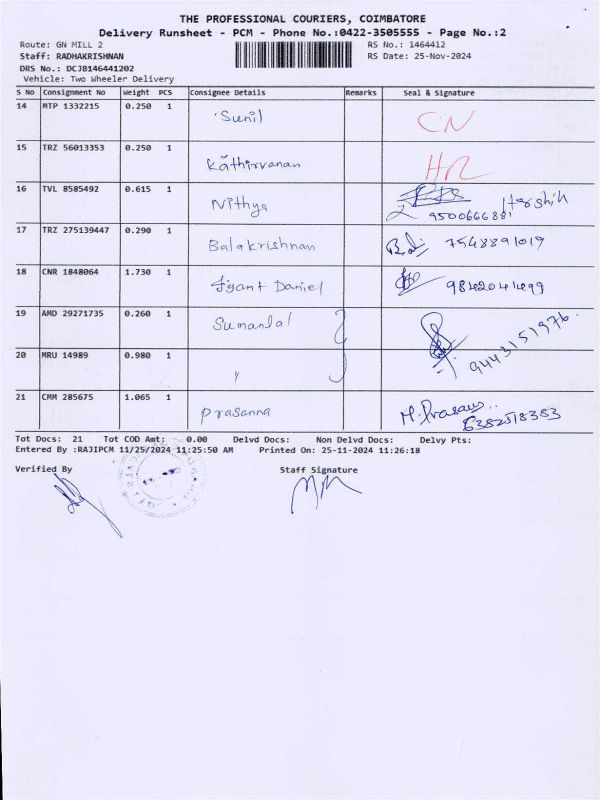 THE PROFESSIONAL COURIERS, COIMBATORE
Delivery Runsheet - PCM - Phone No.:0422-3505555 - Page No.:2
Route: GN MILL 2 RS No.: 1464412
Staff: RADHAKRISHNAN RS Date: 25-Nov-2024
DRS No.: DCJB146441202
Vehicle: Two Wheeler Delivery
S No Consignment No Weight PCS Consignee Details Remarks Seal & Signature
14 MTP 1332215 0.250 1 Sunil CN
15 TRZ 56013353 0.250 1 Kathirvanan HR
16 TVL 8585492 0.615 1 Nithya Harshih
9500666881
17 TRZ 275139447 0.290 1 Balakrishnan 7548891019
18 CNR 1848064 1.730 1 Daniel 9842041499
19 AMD 29271735 0.260 1 Sumanlal 9443151976.
20 MRU 14989 0.980 1 "
21 CMM 285675 1.065 1 Prasanna M. Prasanna
6382518383
Tot Docs: 21 Tot COD Amt: 0.00 Delvd Docs: Non Delvd Docs: Delvy Pts:
Entered By :RAJIPCM 11/25/2024 11:25:50 AM Printed On: 25-11-2024 11:26:18
Verified By Staff Signature